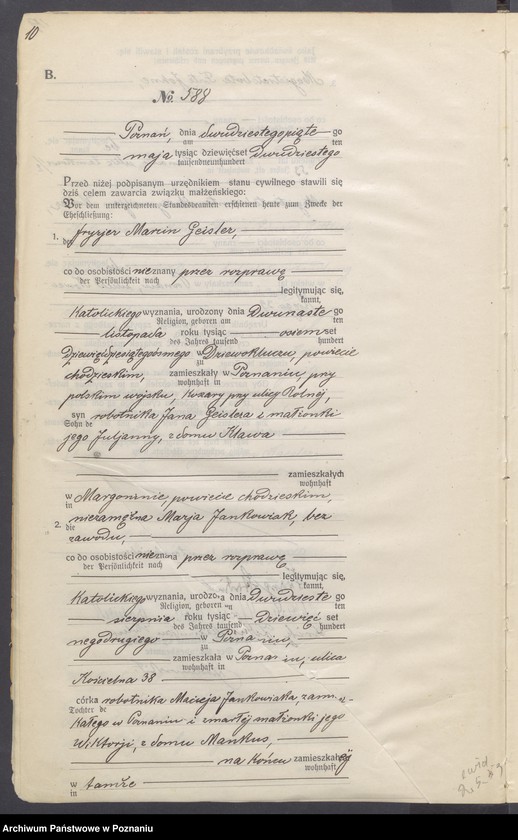 10
B.
№ 588
Poznań, dnia dwudziestegopiąte go
am ten
maja tysiąc dziewięćset dwudziestego
tausendneunhundert
Przed niżej podpisanym urzędnikiem stanu cywilnego stawili się
dziś celem zawarcia związku małżeńskiego:
Vor dem unterzeichneten Standesbeamten erschienen heute zum Zwecke der
Eheschließung:
1. fryzjer Marcin Geisler,
der
co do osobistości nieznany przez rozprawę
der Persönlichkeit nach
legitymując się,
kannt,
Katolickiego wyznania, urodzony dnia Dwunaste go
Religion, geboren am ten
listopada roku tysiąc osiem set
des Jahres tausend hundert
Dziewięćdziesiątegoósmego w Dziewoklucu, powiecie
zu
chodzieskim, zamieszkały w Poznaniu, przy
wohnhaft in
polskim wojsku, Koszary przy ulicy Rolnej,
syn robotnika Jana Geislera i małżonki
Sohn de
jego Juljanny, z domu Kława
zamieszkałych
wohnhaft
w Margoninie, powiecie chodzieskim,
in
2. niezamężna Marja Jankowiak, bez
die
zawodu,
co do osobistości nieznana przez rozprawę
der Persönlichkeit nach
legitymując się,
kannt,
Katolickiego wyznania, urodzona dnia dwudzieste go
Religion, geboren am ten
sierpnia roku tysiąc Dziewięć set
des Jahres tausend hundert
negodrugiego w Poznaniu,
zu
zamieszkała w Poznaniu, ulica
wohnhaft in
Kościelna 38
córka robotnika Macieja Jankowiaka, zamiesz-
Tochter de
kałego w Poznaniu i zmarłej małżonki jego
Wiktorji, z domu Mankus,
na końcu zamieszkałej
wohnhaft
w tamże
in
Archiwum Państwowe w Poznaniu